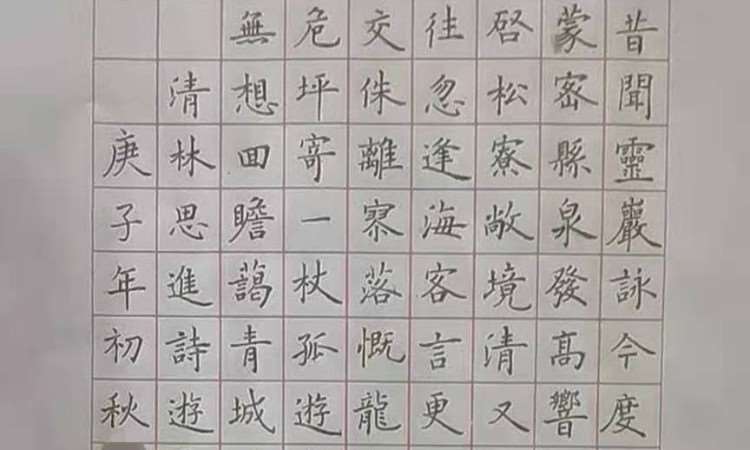 昔聞靈巖詠今度
蒙密縣泉發高響
啓松寮敞境清又
往忽逢海客言更
交侏離寥落慨龍
危坪寄一杖孤遊
無想回瞻藹青城
清林思進詩遊
庚子年初秋